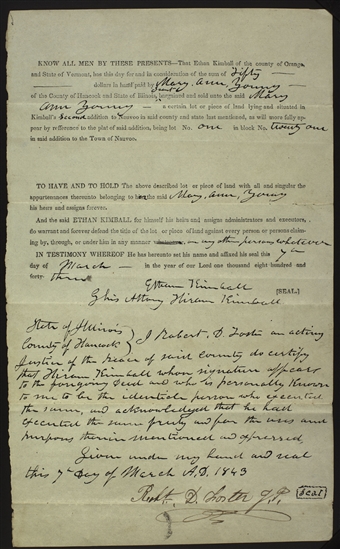 KNOW ALL MEN BY THESE PRESENTS—That Ethan Kimball of the county of Orange,
and State of Vermont, has this day for and in consideration of the sum of Fifty
dollars in hand paid by Mary Ann Young
of the County of Hancock and State of Illinois, bargained and sold unto the said Mary
Ann Young a certain lot or piece of land lying and situated in
Kimball's second addition to Nauvoo in said county and state last mentioned, as will more fully
appear by reference to the plat of said addition, being lot No. one in block No. twenty one
in said addition to the Town of Nauvoo.
TO HAVE AND TO HOLD The above described lot or piece of land with all and singular the
appurtenances thereunto belonging to the said Mary, Ann, Young
his heirs and assigns forever.
And the said ETHAN KIMBALL for himself his heirs and assigns administrators and executors,
do warrant and forever defend the title of the lot or piece of land against every person or persons claim-
ing by, through, or under him in any manner or any other person whatever
IN TESTIMONY WHEREOF He has hereunto set his name and affixed his seal this 7th
day of March in the year of our Lord one thousand eight hundred and
forty-three
Ethan Kimball
[SEAL.]
By his Attorny Hiram Kimball
State of Illinois
County of Hancock } I Robert. D. Foster an acting
Justice of the peace of said county do certify
that Hiram Kimball whose signature appears
to the foregoing deed and who is personally known
to me to be the identicle person who executed
the same, and acknowledged that he had
executed the same freely and for the uses and
purposes therein mentioned and expressed
Given under my hand and seal
this 7th Day of March A.D. 1843
Robt. D. Foster J.P. seal